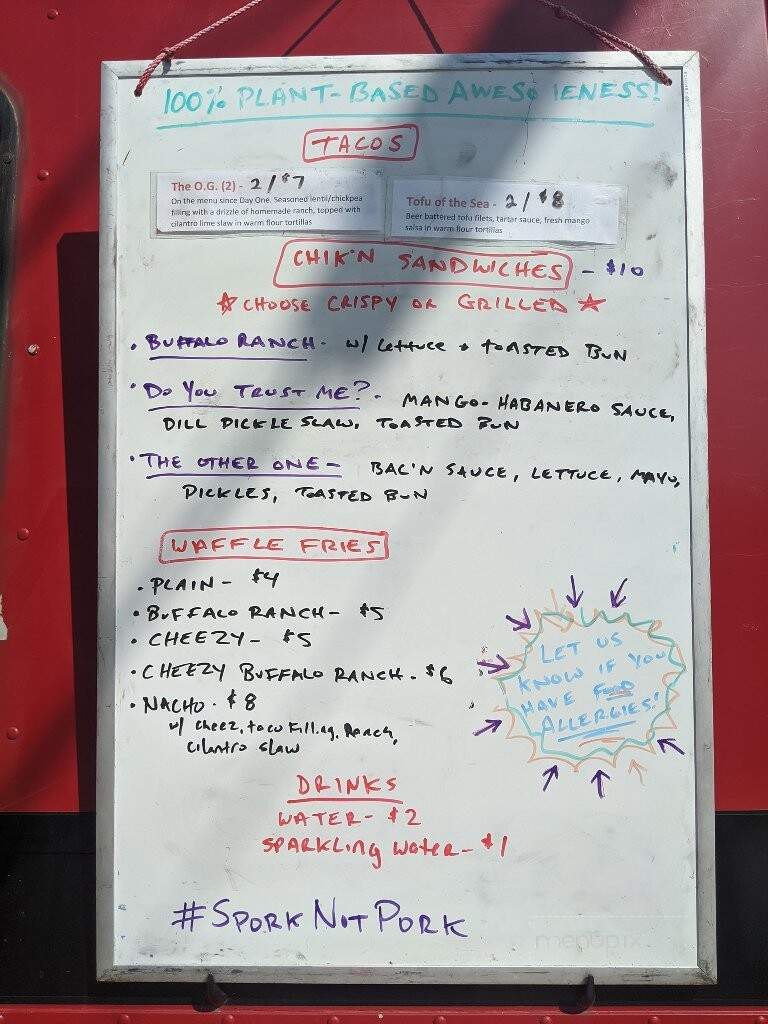 100% PLANT-BASED AWESOMENESS!
TACOS
The O.G. (2) - 2/$7
On the menu since Day One. Seasoned lentil/chickpea
filling with a drizzle of homemade ranch, topped with
cilantro lime slaw in warm flour tortillas
Tofu of the Sea - 2/$8
Beer battered tofu filets, tartar sauce, fresh mango
salsa in warm flour tortillas
CHIK'N SANDWICHES - $10
CHOOSE CRISPY OR GRILLED
• BUFFALO RANCH - w/ LETTUCE + TOASTED BUN
• DO YOU TRUST ME? - MANGO-HABANERO SAUCE,
DILL PICKLE SLAW, TOASTED BUN
• THE OTHER ONE - BAC'N SAUCE, LETTUCE, MAYO,
PICKLES, TOASTED BUN
WAFFLE FRIES
• PLAIN - $4
• BUFFALO RANCH - $5
• CHEEZY - $5
• CHEEZY BUFFALO RANCH - $6
• NACHO - $8
w/ cheez, taco filling, Ranch,
cilantro slaw
LET US
KNOW IF YOU
HAVE FOOD
ALLERGIES!
DRINKS
WATER - $2
SPARKLING WATER - $1
#SPORKNOTPORK
menupix